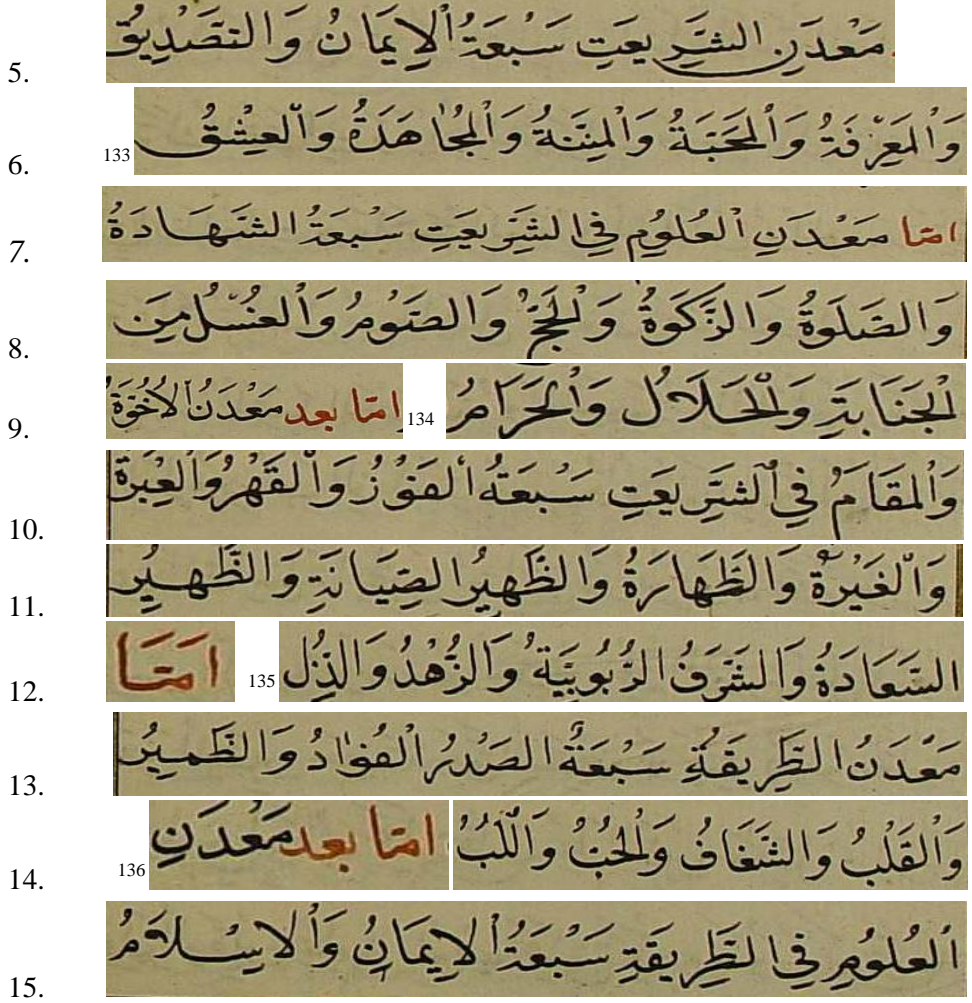 5. مَعْدَنِ الشَّرِيعَتِ سَبْعَةُ الْاِيمَانُ وَالتَّصْدِيقُ
6. وَالْمَعْرِفَةُ وَالْمَحَبَّةُ وَالْمِنَّةُ وَالْمُجَاهَدَةُ وَالْعِشْقُ 133
7. امّا مَعْدَنِ الْعُلُومِ فِي الشَّرِيعَتِ سَبْعَةُ الشَّهَادَةُ
8. وَالصَّلَوةُ وَالزَّكَوةُ وَالْحَجُّ وَالصَّوْمُ وَالْغُسْلُ مِنَ
9. الْجَنَابَةِ وَالْحَلَالُ وَالْحَرَامُ 134 امّا بعد مَعْدَنُ الْاُخُوَّةُ
10. وَالْمَقَامُ فِي الشَّرِيعَتِ سَبْعَةُ الْفَوْزُ وَالْقَهْرُ وَالْعِبْرَةُ
11. وَالْغَيْرَةُ وَالطَّهَارَةُ وَالظَّهِيرُ الصِّيَانَةِ وَالظَّهِيرِ
12. السَّعَادَةُ وَالشَّرَفُ الرُّبُوبِيَّةُ وَالزُّهْدُ وَالذُّلُّ 135 امَّا
13. مَعْدَنُ الطَّرِيقَةِ سَبْعَةٌ الصَدْرُ الْفُوٰادُ وَالظَّمِيرُ
14. وَالْقَلْبُ وَالشَّغَافُ وَالْحُبُّ وَاللُّبُّ امّا بعد مَعْدَنِ 136
15. الْعُلُومِ فِي الطَّرِيقَةِ سَبْعَةُ الْاِيمَانُ وَالْاِسْلَامُ